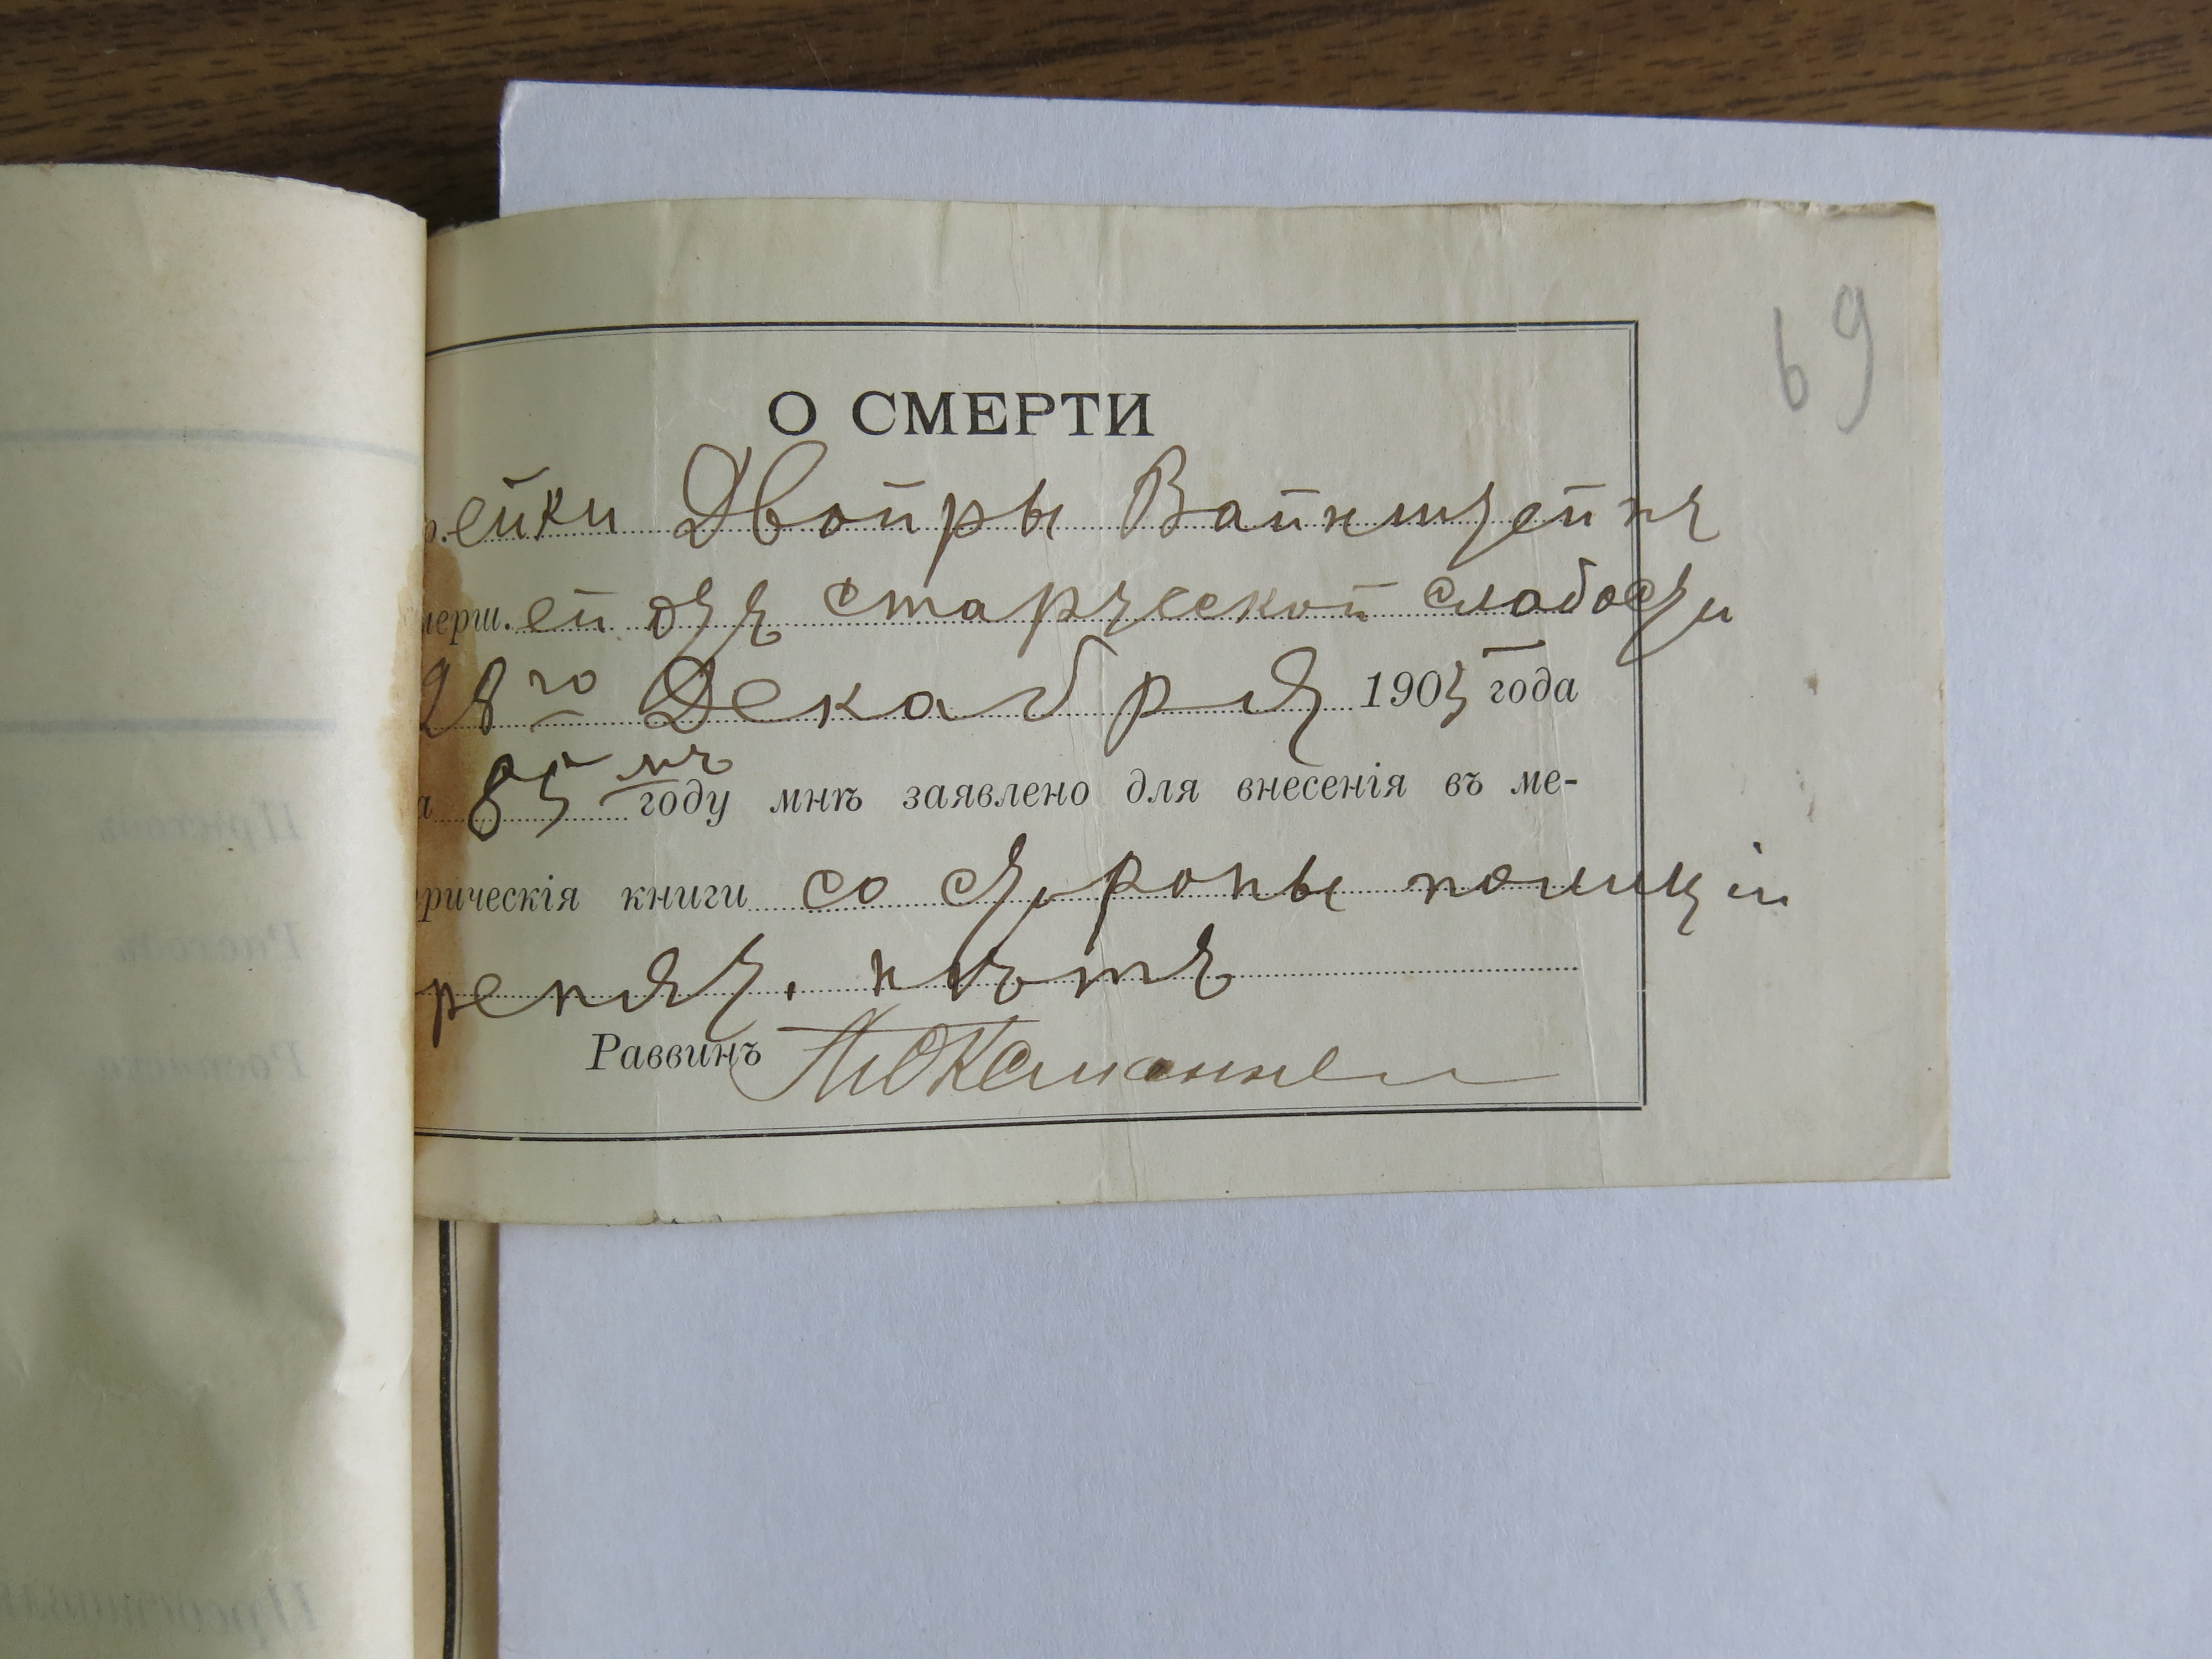 69
О СМЕРТИ
р.ейки Двойры Вайнштейнъ
мерш.ей отъ старческой слабости
28го Декабря 1905 года
а 85 мъ году мнѣ заявлено для внесенія въ ме-
рическія книги со стороны полиціи
репят. нѣтъ
Раввинъ